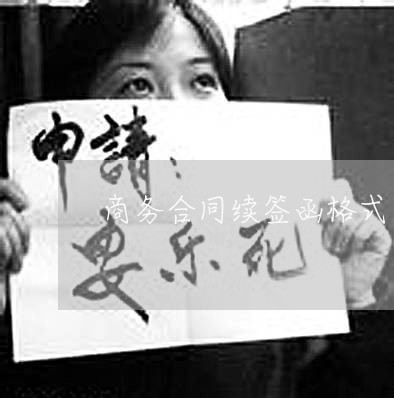 申請：
商务合同续签函格式
安乐死